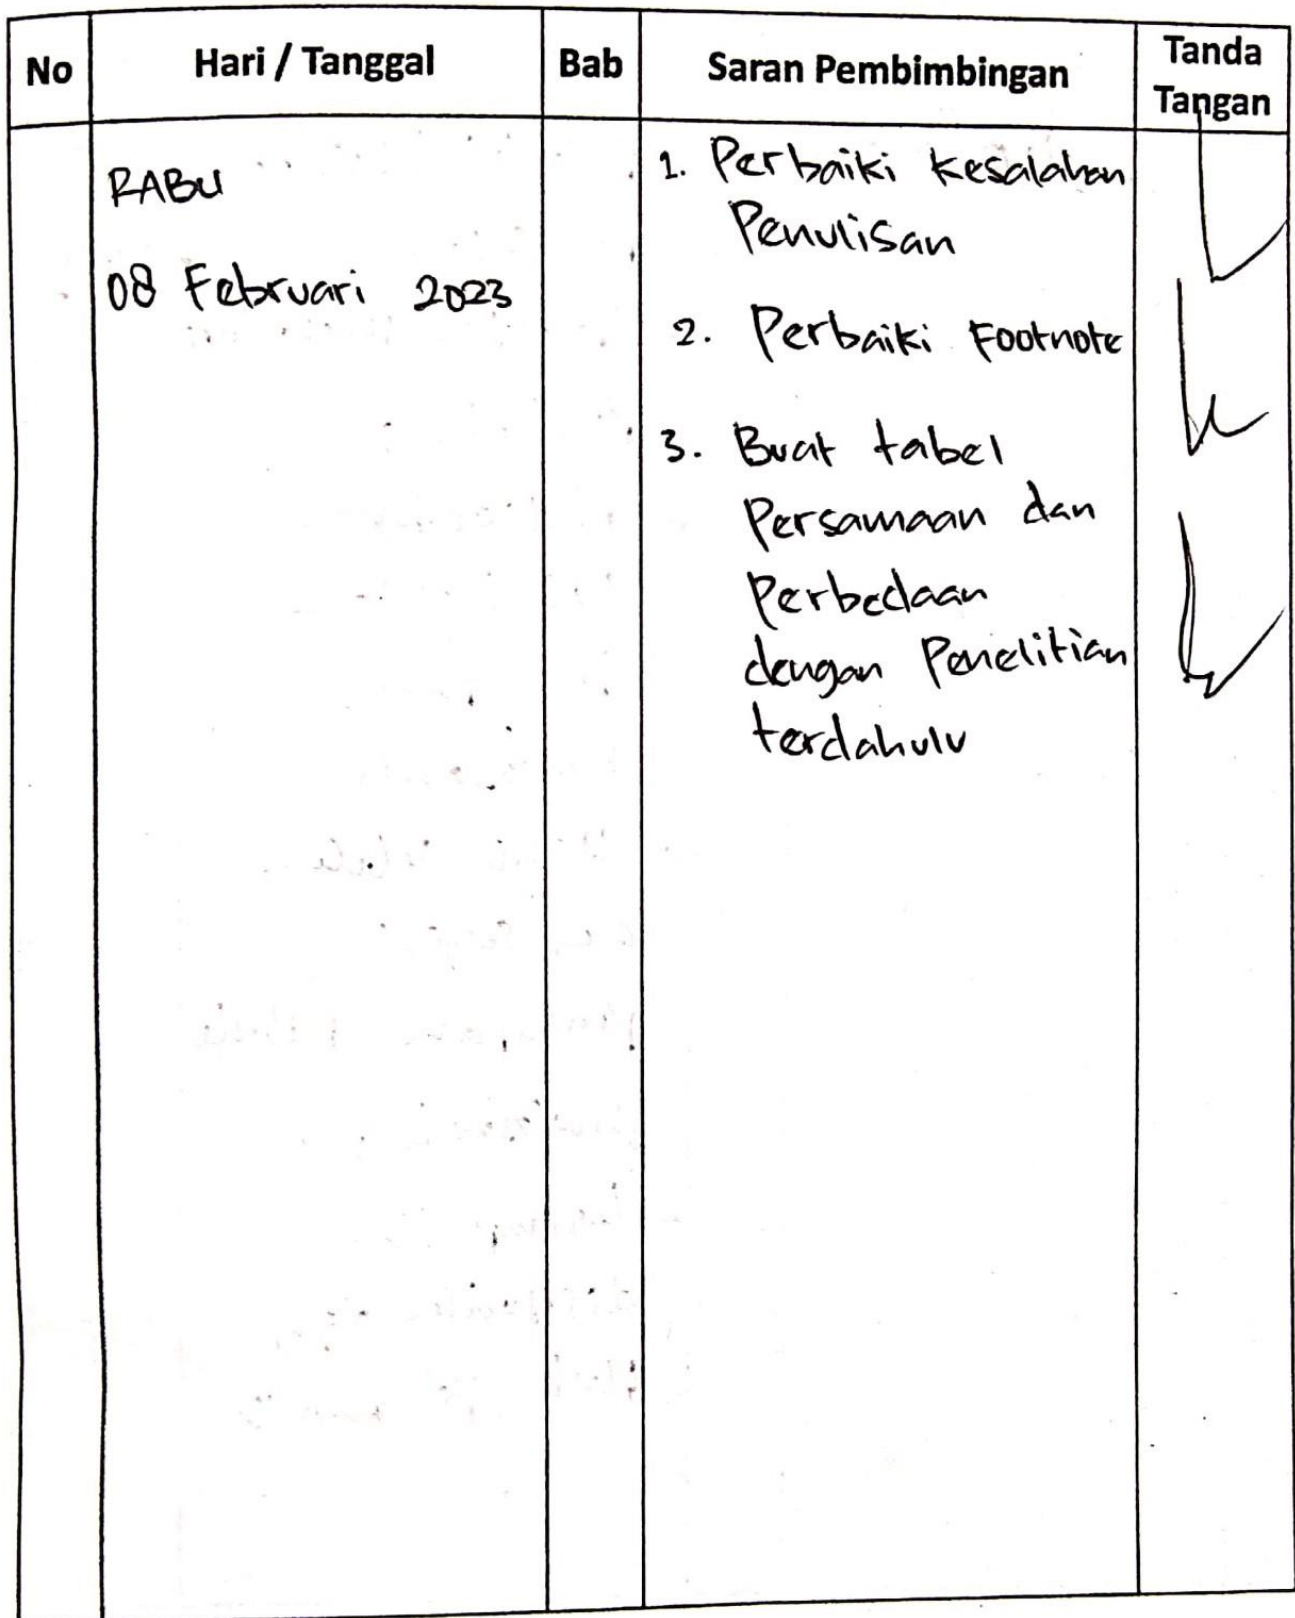 No Hari / Tanggal Bab Saran Pembimbingan Tanda Tangan
RABU
08 Februari 2023
1. Perbaiki Kesalahan
Penulisan
2. Perbaiki Footnote
3. Buat tabel
Persamaan dan
Perbedaan
dengan Penelitian
terdahulu